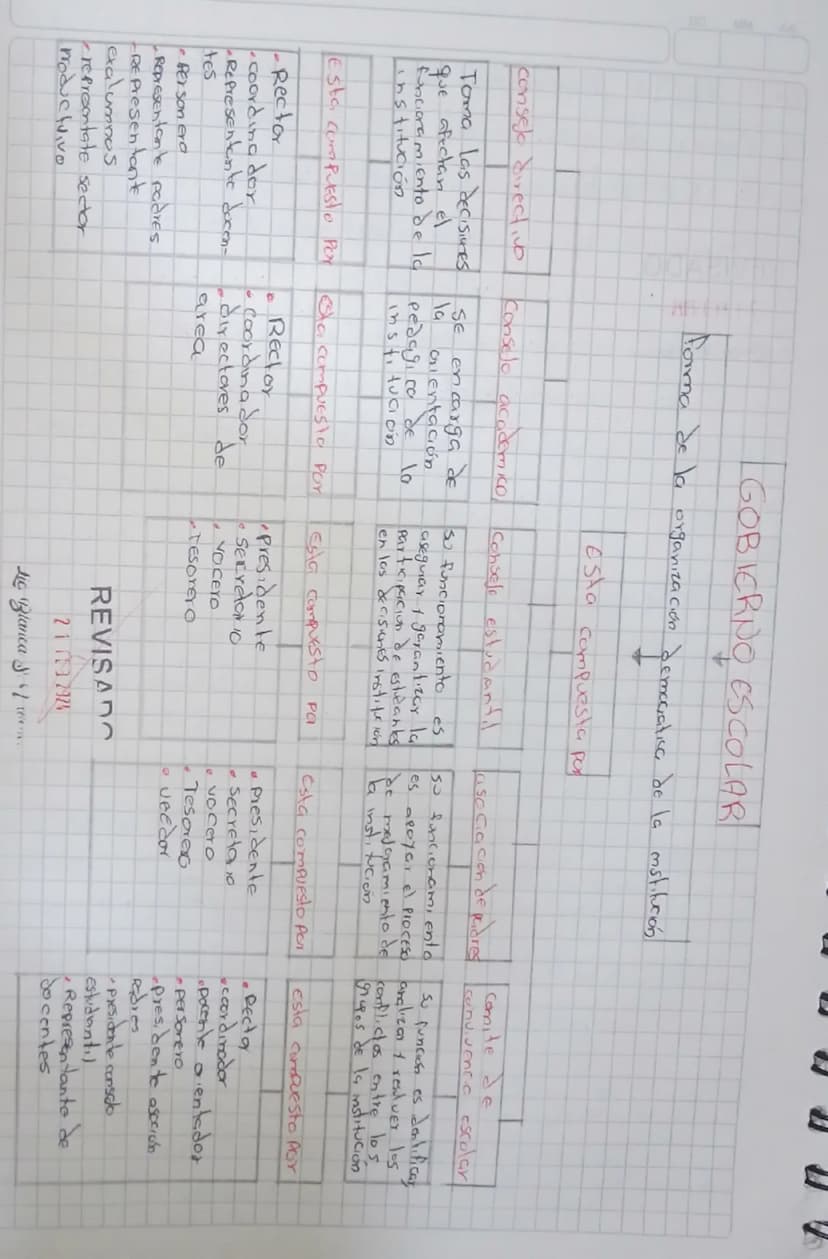 GOBIERNO ESCOLAR
Forma de la organización democratica de la institución
Esta compuesta por
consejo directivo
Toma las decisiones
que afectan el
funcionamiento de la
institución
Esta compuesto por
• Rector
• coordinador
• Representante docen-
tes
• Personero
• Representante padres
• Representante
exalumnos
• reprentate sector
productivo
Consejo academico
Se encarga de
la orientación
pedagica de la
institución
Esta compuesto por
• Rector
• coordinador
• directores de
area
Consejo estudiantil
su funcionamiento es
asegurar y garantizar la
participacion de estidantes
en las decisiones institucion
Esta compuesto por
• Presidente
• secretario
• vocero
• Tesorero
asociacion de padres
su funcionamiento
es apoyar el proceso
de mejoramiento de
la institucion
Esta compuesto por
• presidente
• secretario
• vocero
• Tesorero
• veedor
Comite de
convivencia escolar
su funcion es identificar
analizar y resolver los
conflictos entre los
grupos de la institución
esta compuesto por
• Rector
• coordinador
• Docente orientador
• Personero
• presidente asocición
Padres
• presidente consejo
estudiantil
• Representante de
docentes
REVISADO